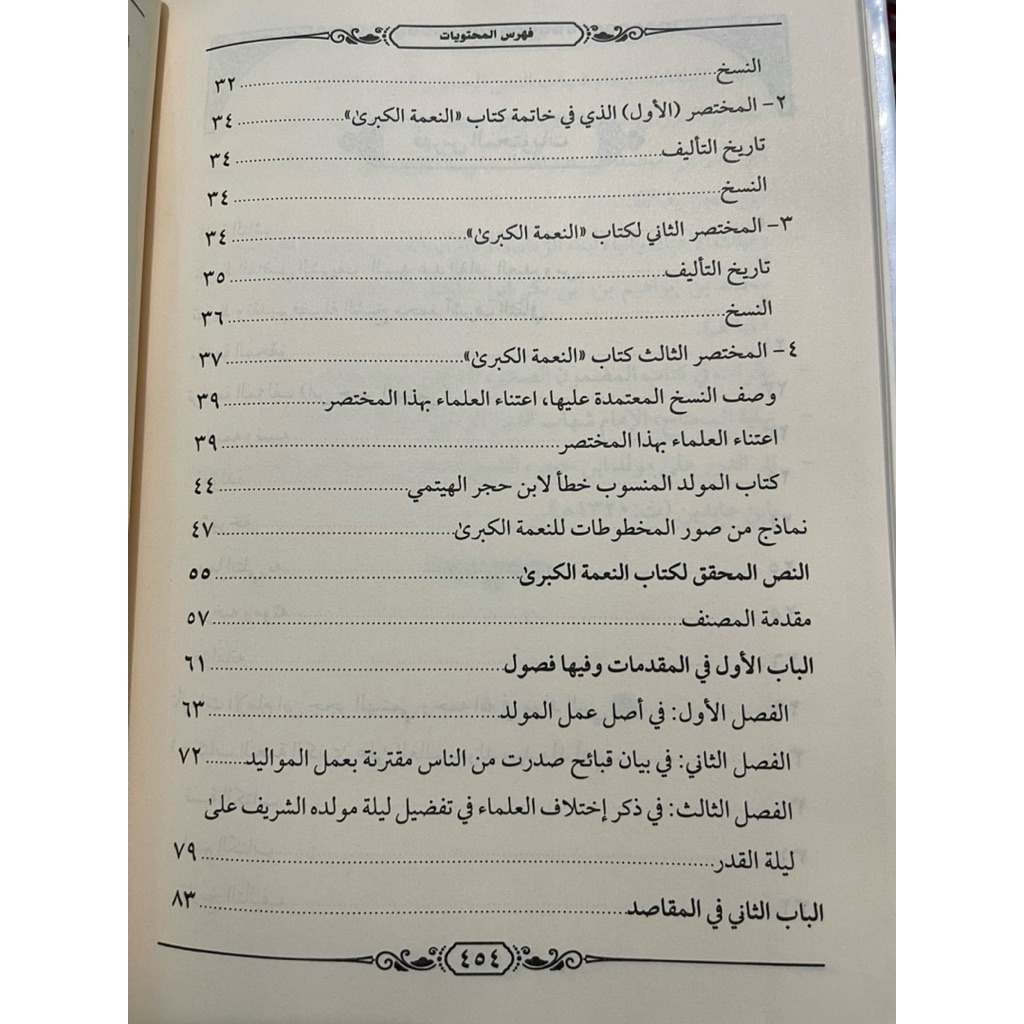 فهرس المحتويات
النسخ ٣٢
٢- المختصر (الأول) الذي في خاتمة كتاب «النعمة الكبرىٰ» ٣٤
تاريخ التأليف ٣٤
النسخ ٣٤
٣- المختصر الثاني لكتاب «النعمة الكبرىٰ» ٣٤
تاريخ التأليف ٣٥
النسخ ٣٦
٤- المختصر الثالث كتاب «النعمة الكبرىٰ» ٣٧
وصف النسخ المعتمدة عليها، اعتناء العلماء بهذا المختصر ٣٩
اعتناء العلماء بهذا المختصر ٣٩
كتاب المولد المنسوب خطأ لابن حجر الهيتمي ٤٤
نماذج من صور المخطوطات للنعمة الكبرىٰ ٤٧
النص المحقق لكتاب النعمة الكبرىٰ ٥٥
مقدمة المصنف ٥٧
الباب الأول في المقدمات وفيها فصول ٦١
الفصل الأول: في أصل عمل المولد ٦٣
الفصل الثاني: في بيان قبائح صدرت من الناس مقترنة بعمل المواليد ٧٢
الفصل الثالث: في ذكر إختلاف العلماء في تفضيل ليلة مولده الشريف علىٰ
ليلة القدر ٧٩
الباب الثاني في المقاصد ٨٣
٤٥٤